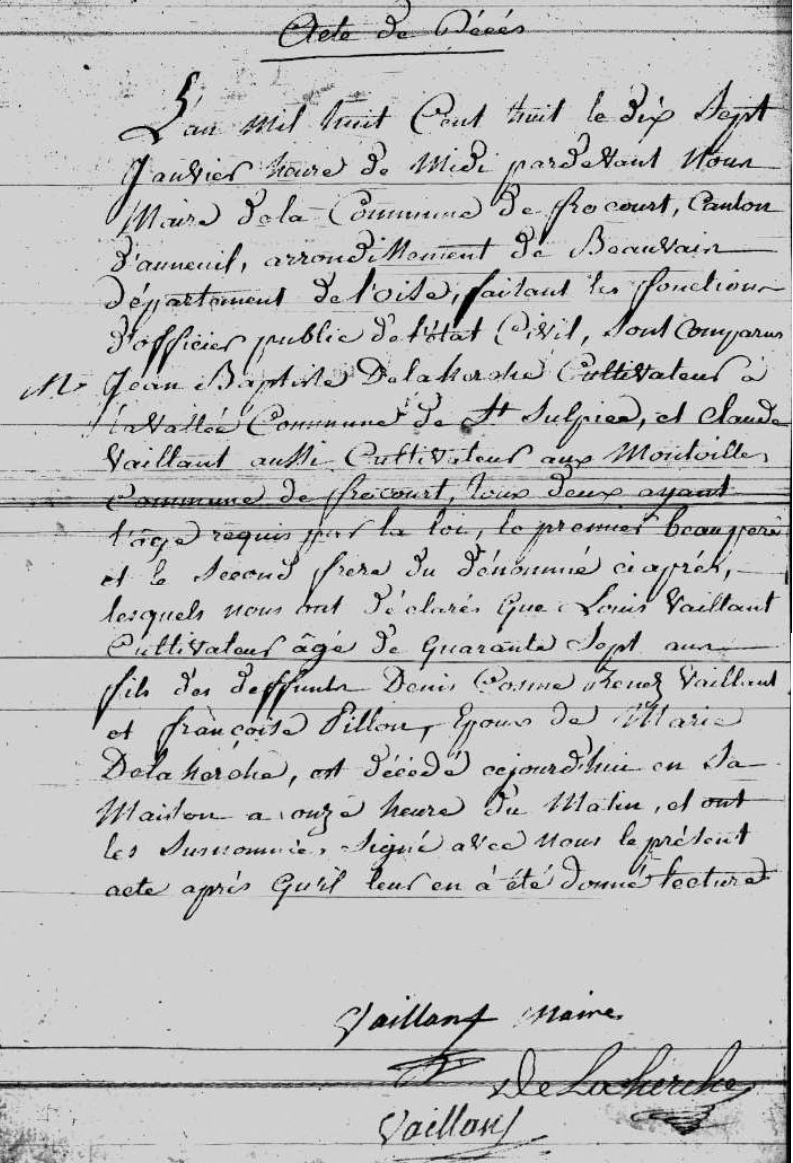 Acte de Décés
L'an mil huit Cent huit le dix Sept
Janvier heure de Midi pardevant Nous
Maire dela Commune de frocourt, Canton
d'auneuil, arrondissement de Beauvais
département de l'oise, faisant les fonctions
d'officier public de l'état Civil, sont Comparus
M. Jean Baptiste Delaherche Cultivateur à
lavallée Commune de St Sulpice, et Claude
Vaillant aussi Cultivateur aux Montoilles
Commune de frocourt, tous deux ayant
l'âge requis par la loi, le premier beaupere
et le second frere du dénommé ciaprès,
lesquels nous ont déclarés que Louis Vaillant
Cultivateur âgé de quarante Sept ans
fils des deffunts Denis Cosme Renez Vaillant
et françoise Pillon, Epoux de Marie
Delaherche, est décédé cejourd'hui en Sa
Maison a onze heure du Matin, et ont
les Susnommés signé avec nous le présent
acte après qu'il leur en à été donné lecture
Vaillant maire
DeLaherche
Vaillant